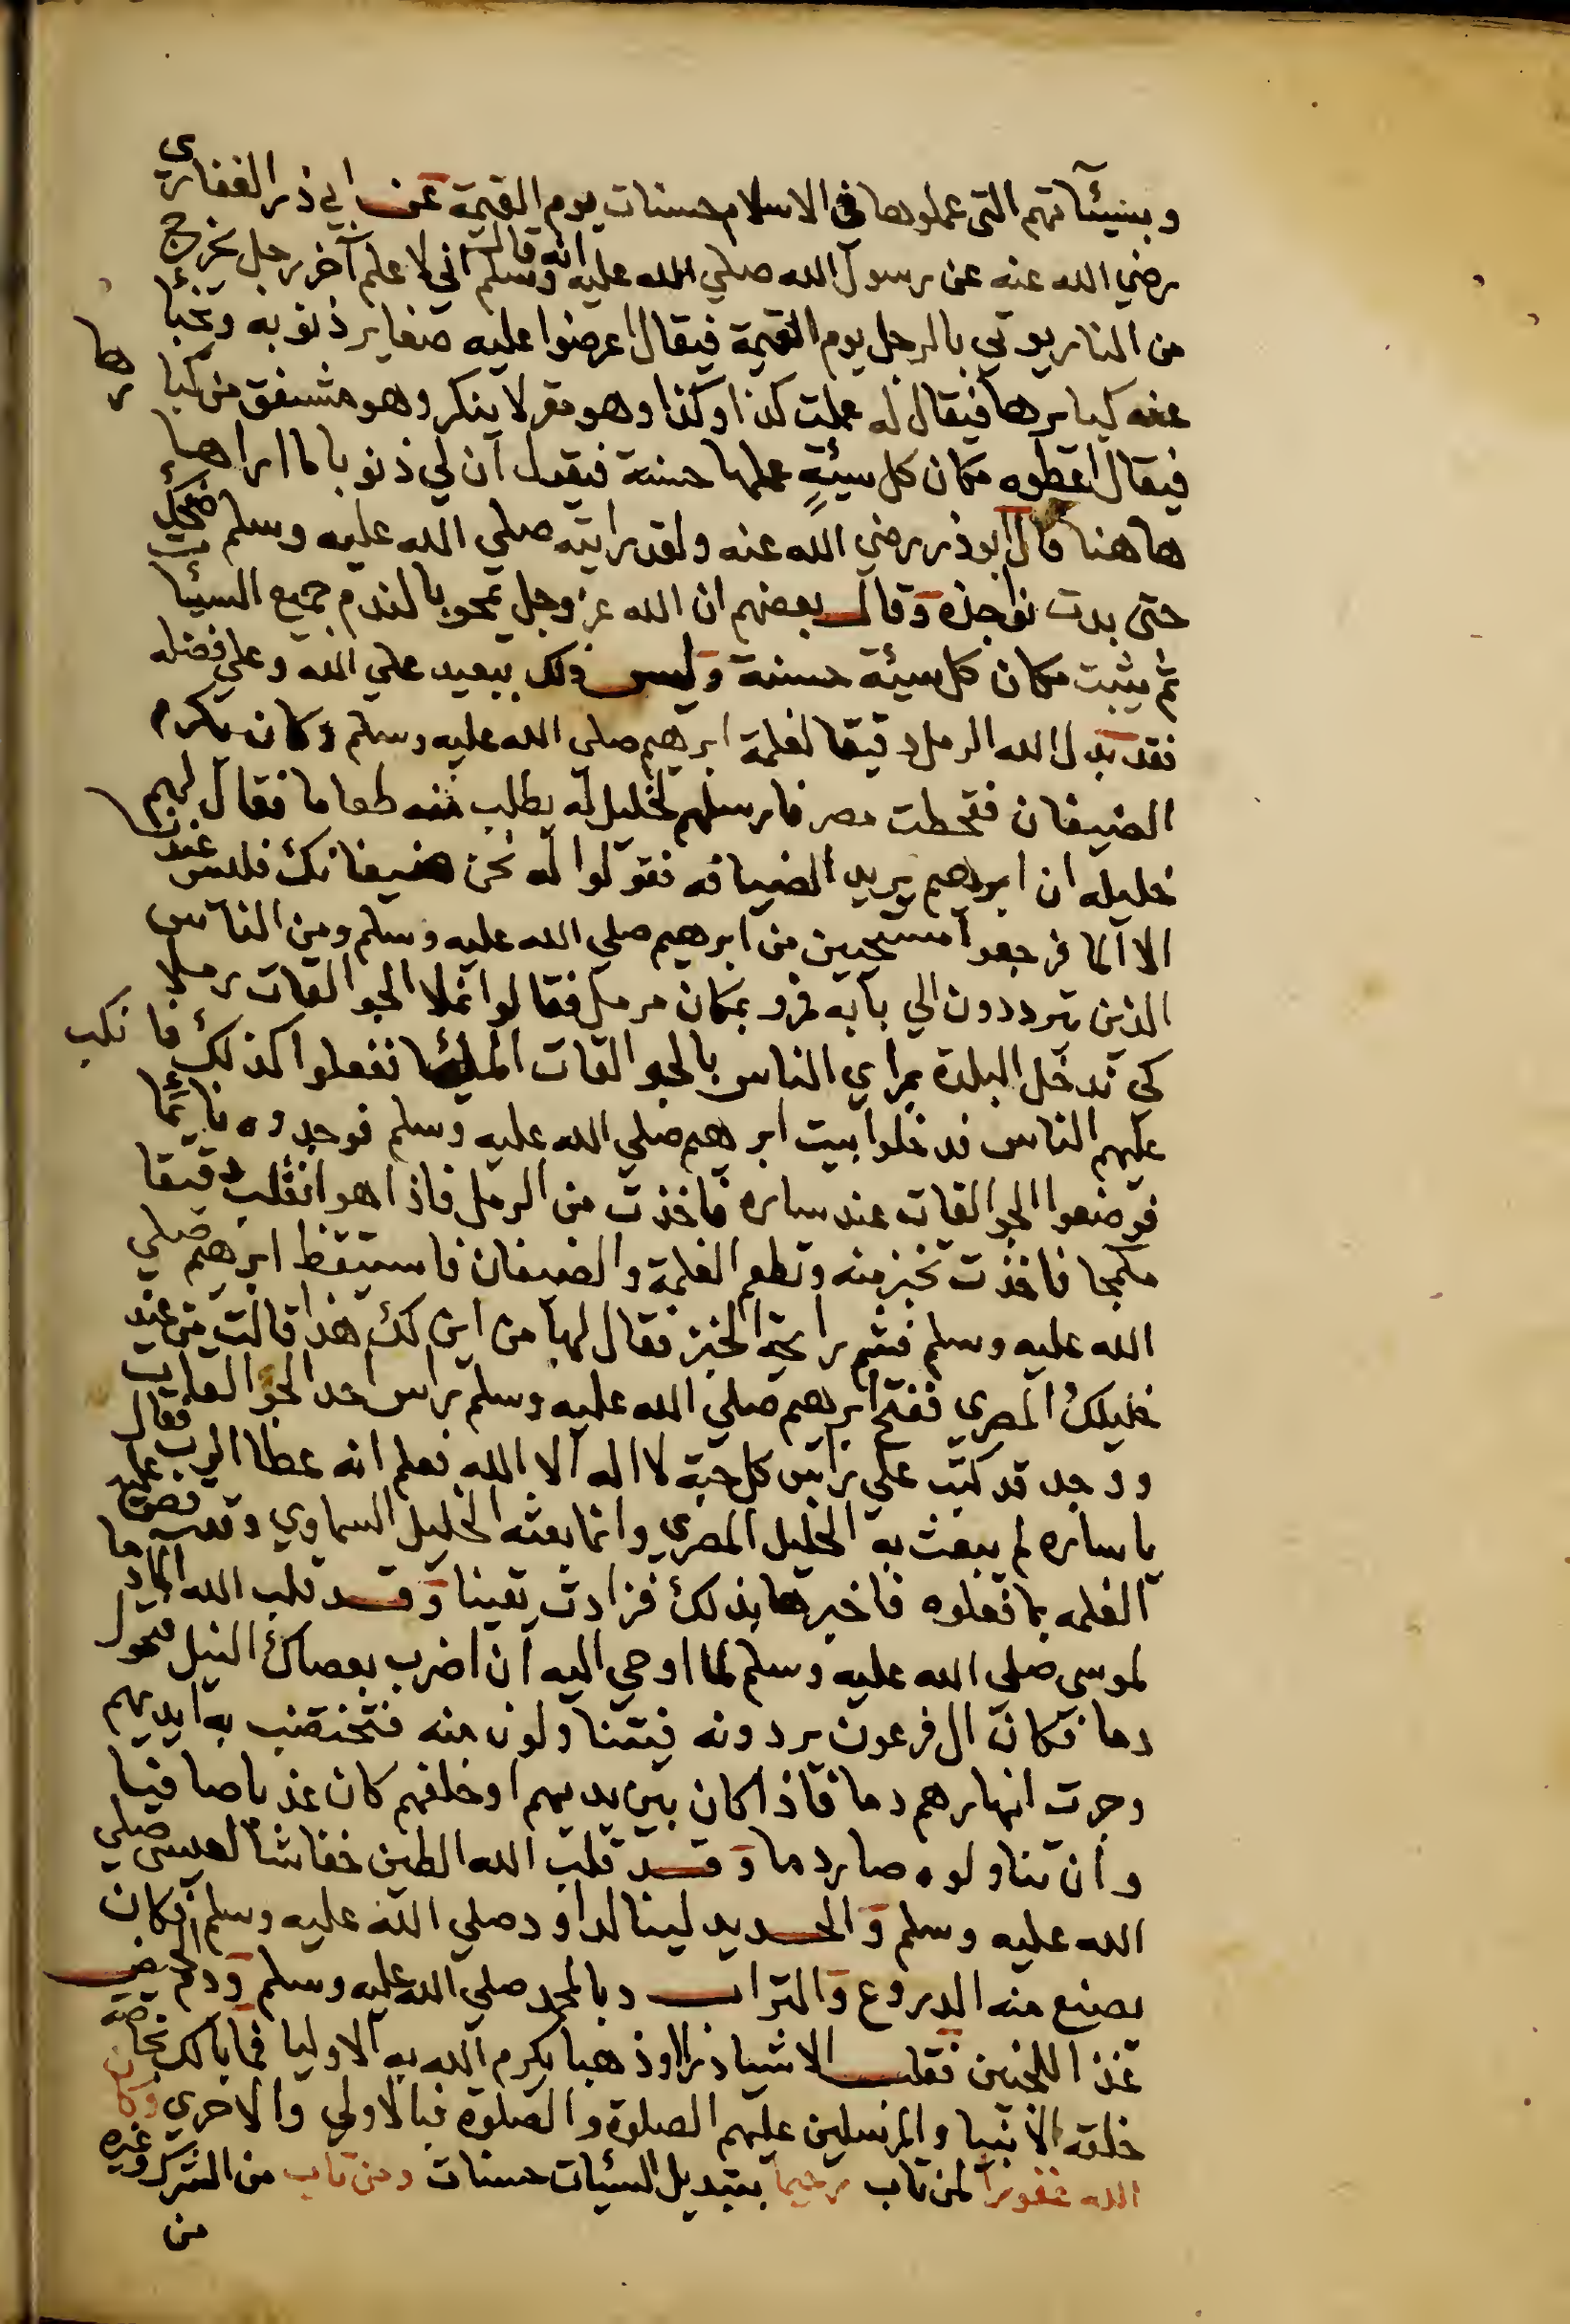 وبسيئآتهم التي عملوها في الاسلام حسنات يوم القيمة عن ابي ذر الغفاري
رضي الله عنه عن رسول الله صلي الله عليه وسلم انه قال اني لا علم آخر رجل يخرج
من النار يوتي بالرجل يوم القيمة فيقال اعرضوا عليه صغاير ذنوبه وتخبأ
عنه كبايرها فيقال له عملت كذا وكذا وهو مقر لا ينكر وهو مشفق من كبايرها
فيقال اعطوه مكان كل سيئةٍ عملها حسنة فيقول ان لي ذنوبا ما اراها
هاهنا قال ابوذر رضي الله عنه ولقد رايته صلي الله عليه وسلم ضحك
حتى بدت نواجذه وقال بعضهم ان الله عز وجل يمحو بالندم جميع السيئات
ثم يثبت مكان كل سيئة حسنة وليس ذلك ببعيد علي الله وعلي فضله
فقد بدل الله الرمل دقيقا لغلمة ابرهيم صلي الله عليه وسلم وكان يكرم
الضيفان فقحطت مصر فارسلهم لخليل له يطلب منه طعاما فقال لهم
خليله ان ابرهيم يريد الضيافه فقولوا له نحن ضيفانك فليس عندنا
الا الما فرجعوا مستحيين من ابرهيم صلي الله عليه وسلم ومن الناس
الذين يترددون الي بابه فمروا بمكان مرمل فقالوا نملا الجوالقات رملا
كي ندخل البلدة بمراي الناس بالجوالقات الملئا ففعلوا كذلك فانكب
عليهم الناس فدخلوا بيت ابرهيم صلي الله عليه وسلم فوجدوه نائما
فوضعوا الجوالقات عند ساره فاخذت من الرمل فاذا هو انقلب دقيقا
فاخذت تخبز منه وتطعم الغلمة والضيفان فاستيقظ ابرهيم صلي
الله عليه وسلم فشم رايحة الخبز فقال لها من اين لك هذا قالت من عند
خليلك المصري ففتح ابرهيم صلي الله عليه وسلم راس احد الجوالقات
ووجد قد كتب علي راس كل حبة لا اله الا الله فعلم انه عطا الرب فقال
يا ساره لم يبعث به الخليل المصري وانما بعثه الخليل السماوي وقص عليها
الغلمه بما فعلوه فاخبرها بذلك فزادت يقينا وقد قلب الله الما دما
لموسى صلى الله عليه وسلم لما اوحي اليه ان اضرب بعصاك النيل فتحول
دما فكان ال فرعون يردونه فيتناولون منه فتختضب به ايديهم
وجرت انهارهم دما فاذا كان بين يديهم او خلفهم كان عذبا صافيا
وان تناولوه صار دما وقد قلب الله الطين خفاشا لعيسى صلي
الله عليه وسلم والحديد لينا لداود صلي الله عليه وسلم فكان
يصنع منه الدروع والتراب دبالمحمد صلي الله عليه وسلم ودم الحيض
غذا للجنين فقلب الاشيا ذرا وذهبا يكرم الله به الاوليا فما بالك بخاصة
خلقه الانبيا والمرسلين عليهم الصلوة والصلوة فبالاولي والاحري وكان
الله غفورا لمن تاب رحيما بتبديل السئيات حسنات ومن تاب من الشرك وغيره
من